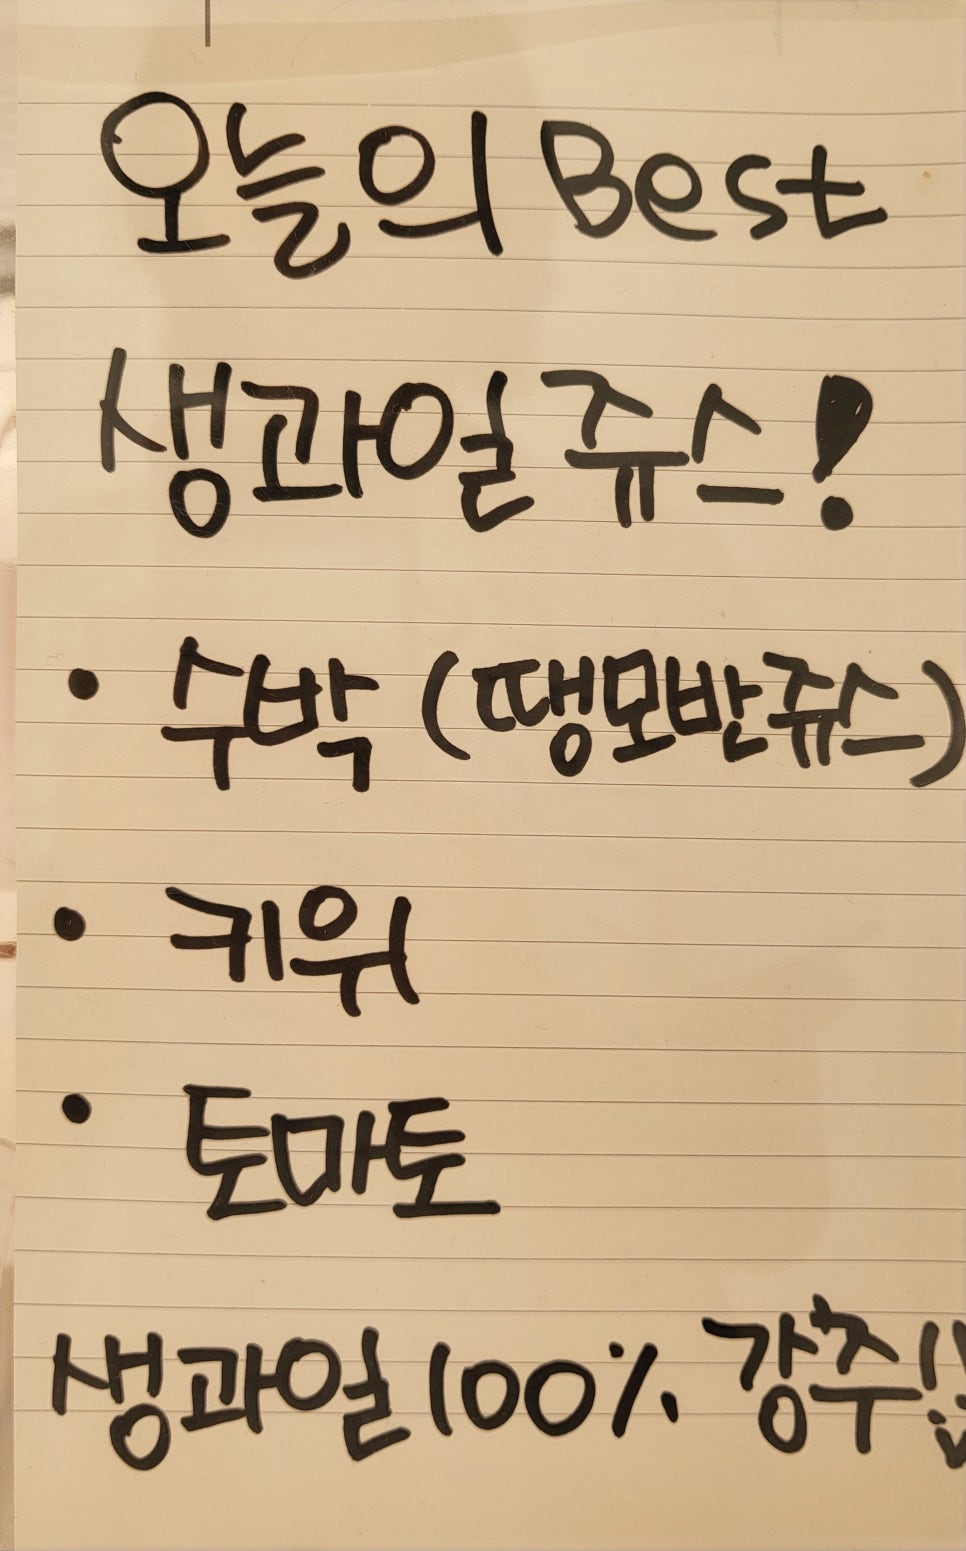 오늘의 Best
생과일 쥬스!
• 수박 (땡모반쥬스)
• 키위
• 토마토
생과일 100% 강추!!